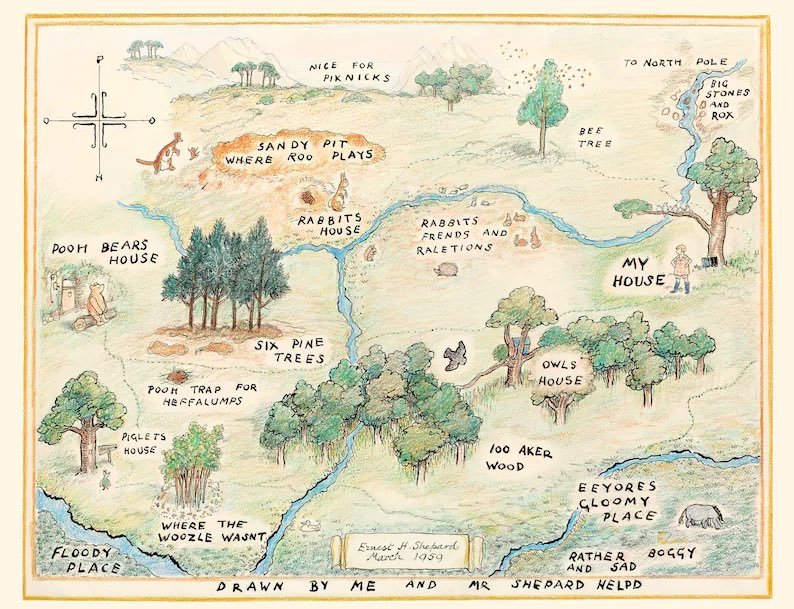 NICE FOR
PIKNICKS
TO NORTH POLE
BIG
STONES
AND
ROX
BEE
TREE
P
O
O
H
SANDY PIT
WHERE ROO PLAYS
RABBITS
HOUSE
RABBITS
FRENDS AND
RALETIONS
POOH BEARS
HOUSE
MY
HOUSE
SIX PINE
TREES
OWLS
HOUSE
POOH TRAP FOR
HEFFALUMPS
PIGLETS
HOUSE
100 AKER
WOOD
WHERE THE
WOOZLE WASNT
EEYORES
GLOOMY
PLACE
FLOODY
PLACE
Ernest H. Shepard
March 1959
RATHER BOGGY
AND SAD
DRAWN BY ME AND MR SHEPARD HELPD